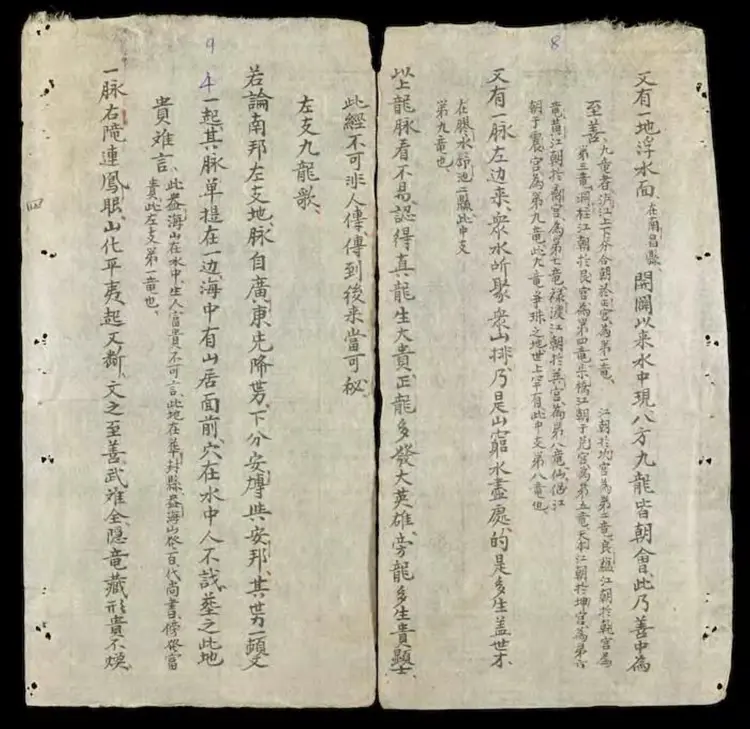 8
又有一地浮水面、在南昌縣、開闢以来水中現八方九龍皆朝會此乃善中為
至善、九竜者沂江上下分合朝於宮為第一竜、江朝於坎宮為第二竜、良江朝於乾宮為
第三竜、澗柱江朝於艮宮為第四竜、橋江朝于兌宮為第五竜、天羽江朝於坤宮為第六
竜、黄江朝於宮、為第七竜、禄渡江朝於巽宮、為第八竜、仙侣江
朝于震宮為第九竜、此九竜爭珠之地世上罕有此中支第八竜也、
又有一脉左边来、衆水所聚衆山排、乃是山窮水盡處、的是多生盖世才
在膠水諒池二縣、此中支
第九竜也
以上龍脉看不易認得真龍生大貴、正龍多發大英雄、旁龍多生貴顯士、
9
此經不可非人傳、傳到後来當可秘、
左支九龍歌、
若論南邦左支地、脉自廣東先降势、下分安博与安邦、其势一頓又
一起、其脉单提在一边、海中有山居面前、穴在水中人不識、葬之此地
貴难言、此海山在水中、生人富貴不可言、此地在華封縣、海山發百代尚書、傍發富
貴、此左支第一竜也、
一脉右障連鳳眼、山化平夷起又断、文之至善、武难全、隐竜藏形貴不煩、
四